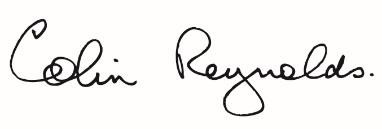 Colin Reynolds.